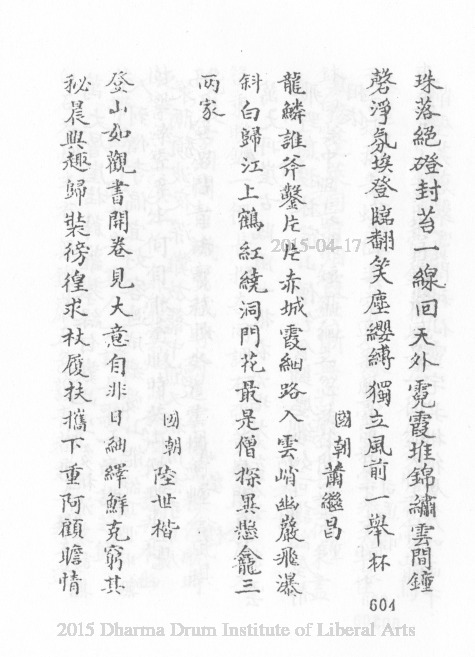 珠落絕磴封苔一線回天外霓霞堆錦繡雲間鐘
磬淨氛埃登臨翻笑塵纓縛獨立風前一舉杯
國朝蕭繼昌
龍鱗誰斧鑿片片赤城霞細路入雲峭幽巖飛瀑
斜白歸江上鶴紅繞洞門花最是僧探異懸龕三
兩家
國朝陸世楷
登山如觀書開卷見大意自非日紬繹鮮克窮其
秘晨興趣歸裝徬徨求杖履扶攜下重阿顧瞻情
604
2015-04-17
2015 Dharma Drum Institute of Liberal Arts